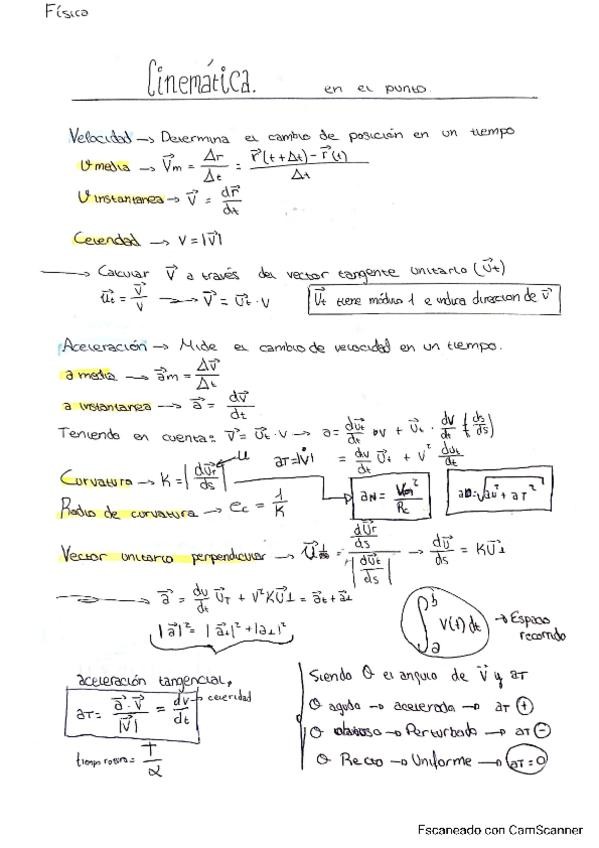 Física
Cinemática. en el punto.
Velocidad → Determina el cambio de posición en un tiempo
V media → V⃗m = Δr/Δt = (r⃗(t+Δt) − r⃗(t))/Δt
V instantanea → V⃗ = dr⃗/dt
Celeridad → V = |V⃗|
→ Calcular V⃗ a través del vector tangente unitario (U⃗t)
U⃗t = V⃗/V → V⃗ = U⃗t · V
U⃗t tiene módulo 1 e indica direccion de V⃗
Aceleración → Mide el cambio de velocidad en un tiempo.
a media → a⃗m = ΔV⃗/Δt
a instantanea → a⃗ = dV⃗/dt
Teniendo en cuenta: V⃗ = U⃗t · V → a = dU⃗t/dt · V + U⃗t · dV/dt (ds/ds)
aT = |V̇| = dv/dt U⃗t + V² dut/dt
Curvatura → K = |dU⃗T/ds|
aN = /Rc
Radio de curvatura → ec = 1/K
Vector unitario perpendicular → U⃗⊥ = (dU⃗T/ds)/|dU⃗t/ds| → dU⃗/ds = KU⃗⊥
→ a⃗ = dv/dt U⃗T + V²KU⃗⊥ = a⃗t + a⃗⊥
|a⃗|² = |at|² + |a⊥|²
∫ₐᵇ V(t) dt → Espacio recorrido
aceleración tangencial,
aT = a⃗·V⃗/|V⃗| = dv/dt → celeridad
T/α
Siendo θ el angulo de V⃗ y aT
θ agudo → acelerada → aT ⊕
θ obtuso → Perturbado → aT ⊖
θ Recto → Uniforme → aT=0
Escaneado con CamScanner